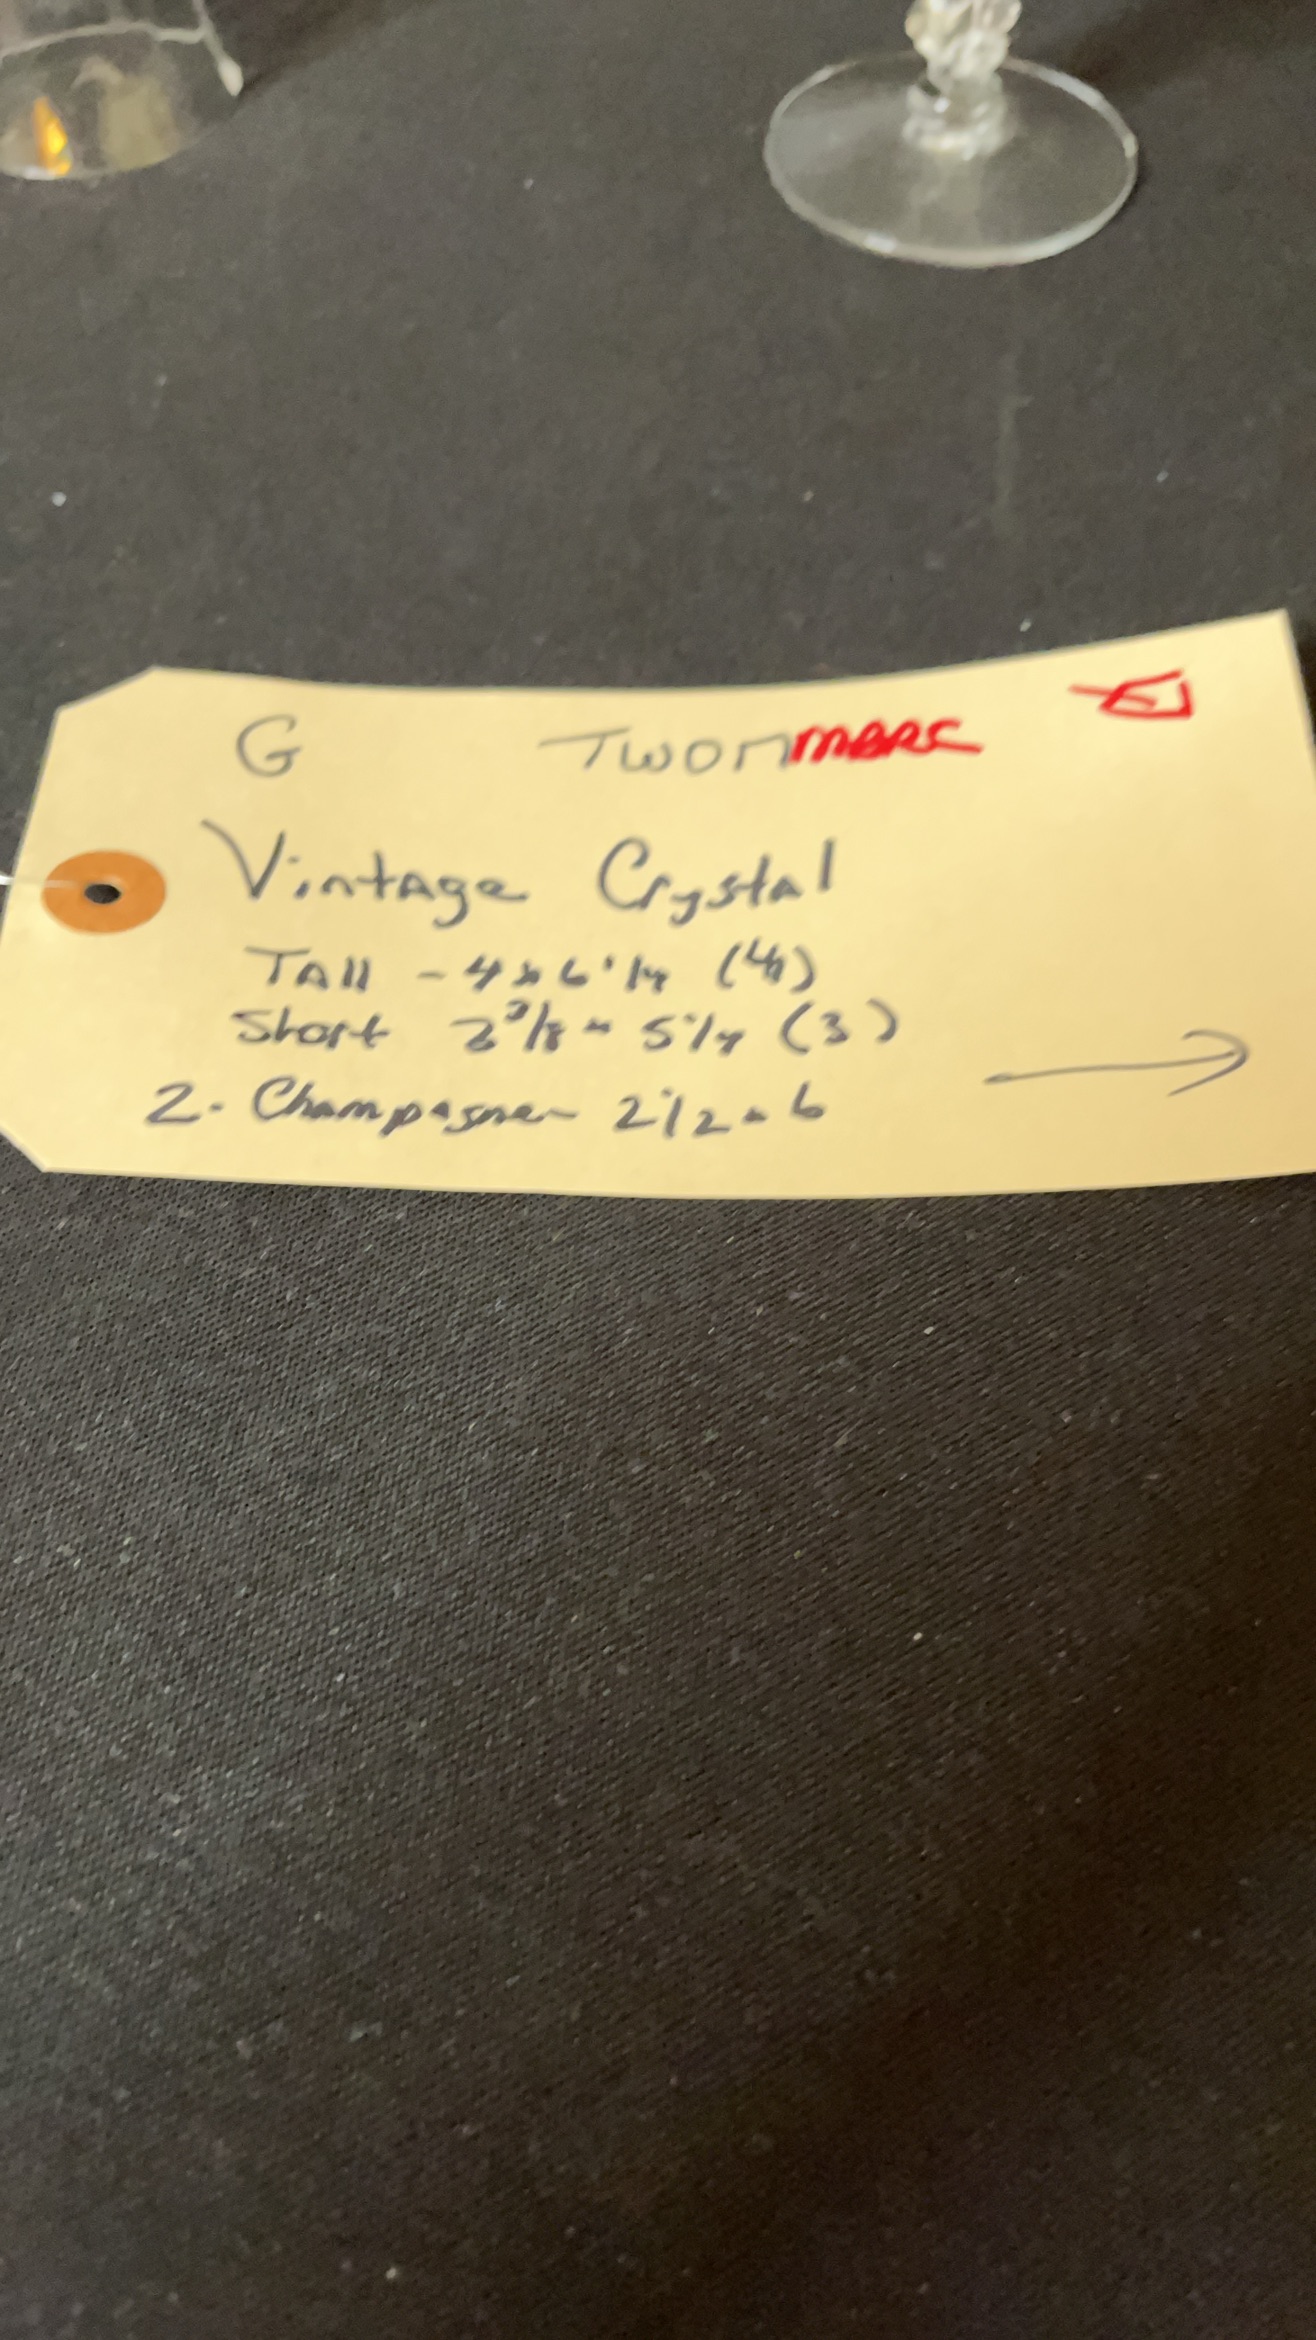 G
Vintage Crystal
Tall - 4 x 6 1/4 (4)
Short 2 3/8 x 5 1/4 (3)
2 - Champagne - 2 1/2 x 6